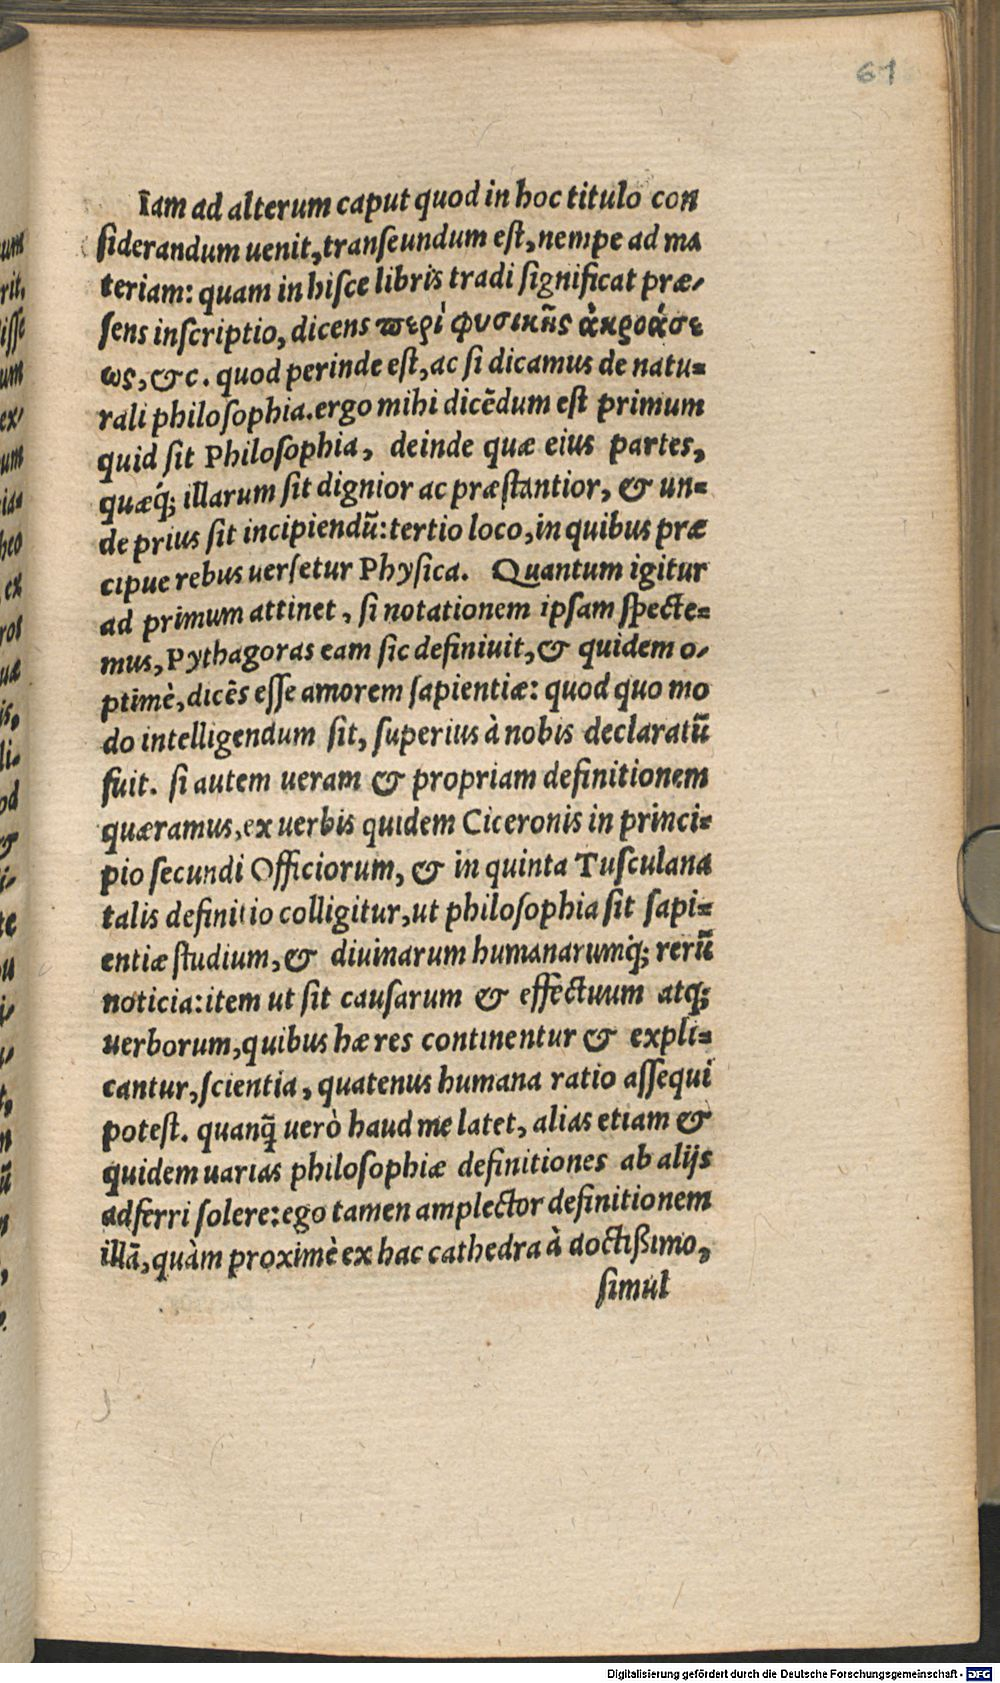 61
Iam ad alterum caput quod in hoc titulo con
ſiderandum uenit, tranſeundum eſt, nempe ad ma
teriam: quam in hiſce libris tradi ſignificat præ-
ſens inſcriptio, dicens ϖερὶ φυσικῆς ἀκροάσε
ως, &c. quod perinde eſt, ac ſi dicamus de natu-
rali philoſophia. ergo mihi dicēdum eſt primum
quid ſit Philoſophia, deinde quæ eius partes,
quæq́; illarum ſit dignior ac præſtantior, & un-
de prius ſit incipiendū: tertio loco, in quibus præ
cipue rebus uerſetur Phyſica. Quantum igitur
ad primum attinet, ſi notationem ipſam ſpecte-
mus, Pythagoras eam ſic definiuit, & quidem o-
ptimè, dicēs eſſe amorem ſapientiæ: quod quo mo
do intelligendum ſit, ſuperius à nobis declaratū
fuit. ſi autem ueram & propriam definitionem
quæramus, ex uerbis quidem Ciceronis in princi-
pio ſecundi Officiorum, & in quinta Tuſculana
talis definitio colligitur, ut philoſophia ſit ſapi-
entiæ ſtudium, & diuinarum humanarumq́; rerū
noticia: item ut ſit cauſarum & effectuum atq;
uerborum, quibus hæ res continentur & expli-
cantur, ſcientia, quatenus humana ratio aſſequi
poteſt. quanq̄ uerò haud me latet, alias etiam &
quidem uarias philoſophiæ definitiones ab alijs
adferri ſolere: ego tamen amplector definitionem
illā, quàm proximè ex hac cathedra à doctißimo,
ſimul
Digitalisierung gefördert durch die Deutsche Forschungsgemeinschaft - DFG